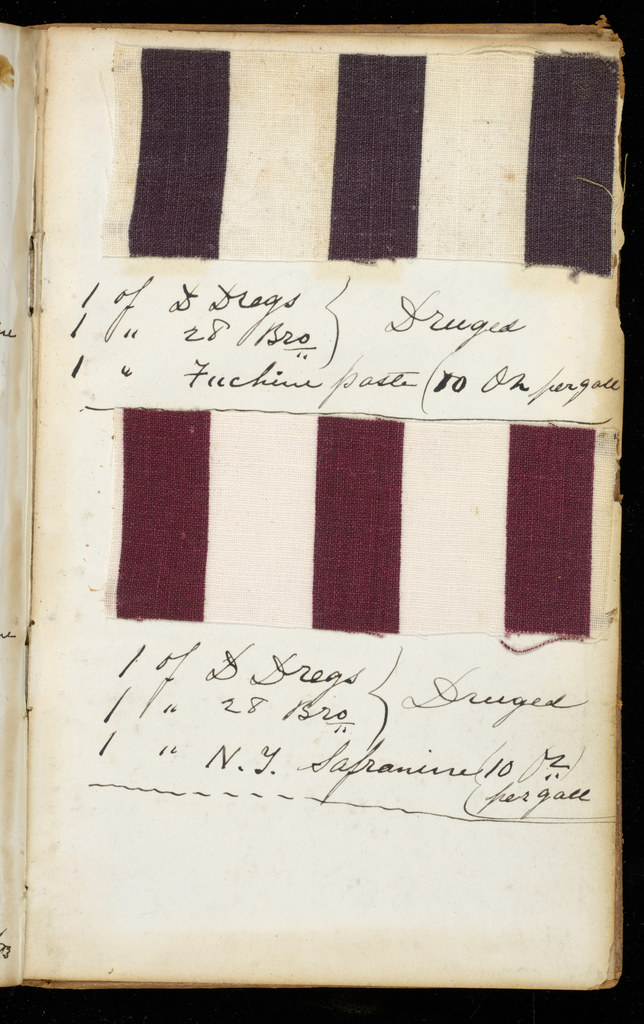 1 of D Dregs } Druged
1 " 28 Bro
1 " Fuchine paste (10 Oz per gall
1 of D Dregs } Druged
1 " 28 Bro
1 " N. Y. Safranine (10 Oz)
(per gall